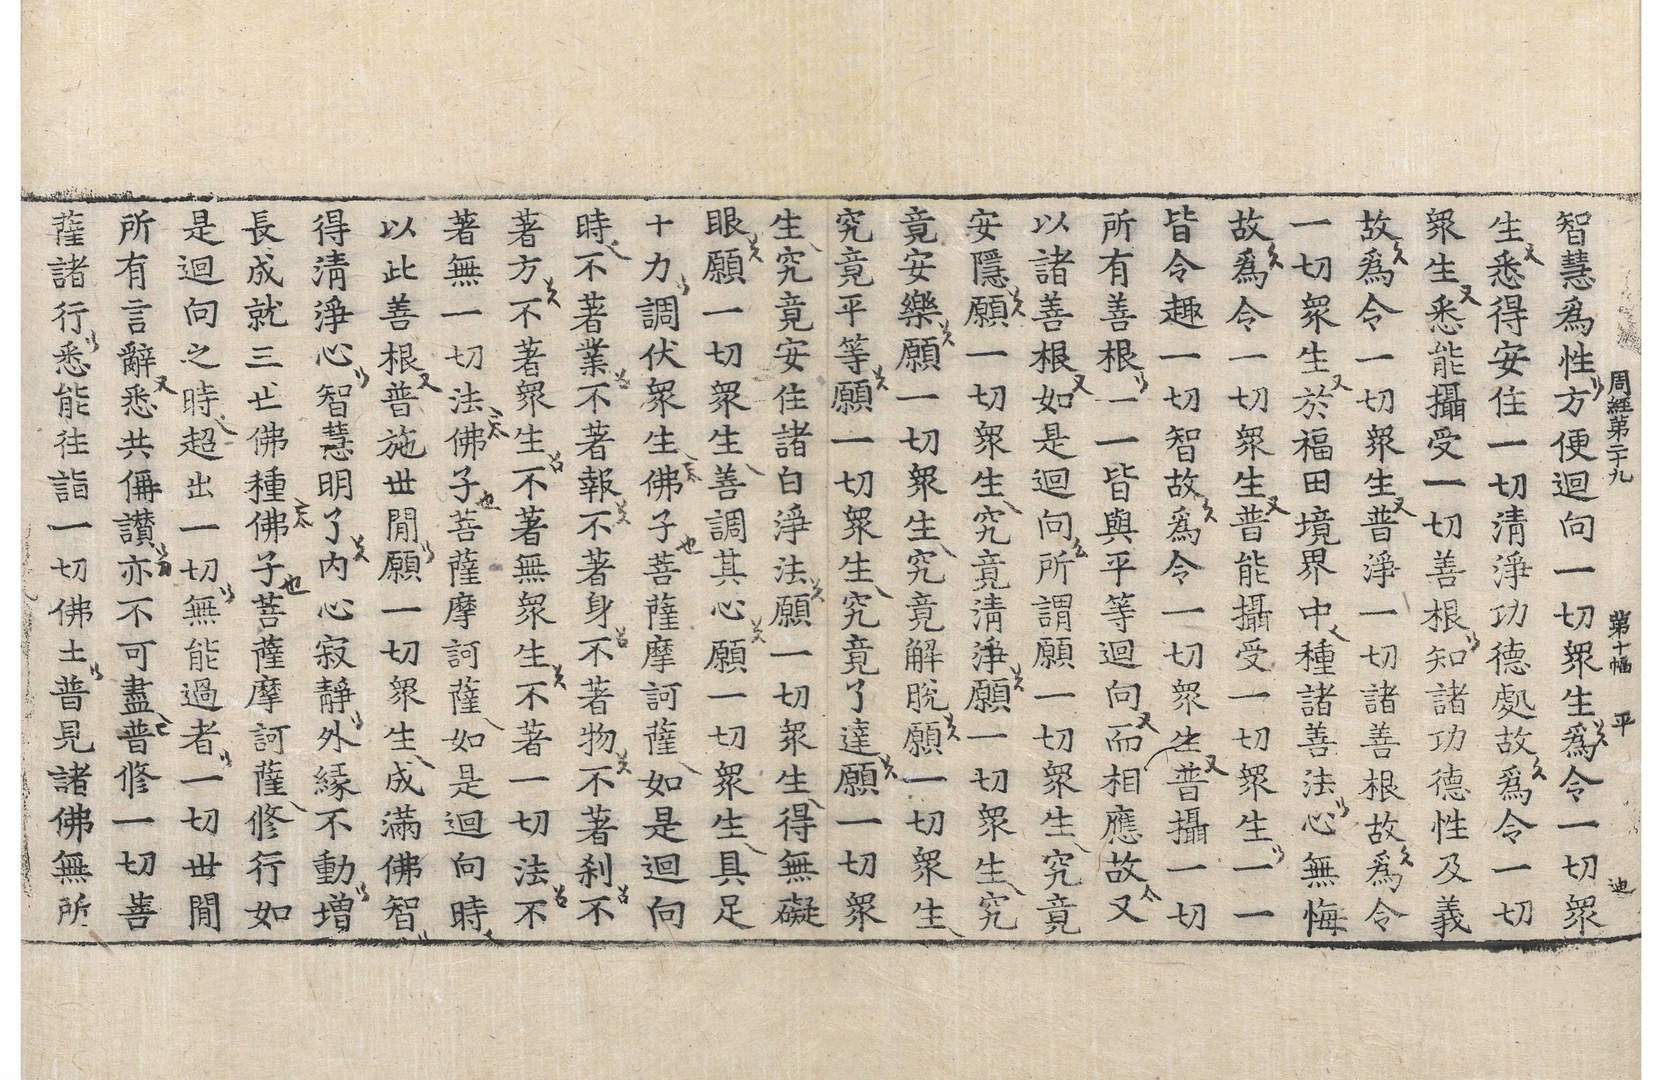 周經第二十九 第十幅 平 迪
智慧爲性方便迴向一切眾生爲令一切眾
生悉得安住一切清淨功德處故爲令一切
眾生悉能攝受一切善根知諸功德性及義
故爲令一切眾生普淨一切諸善根故爲令
一切眾生於福田境界中種諸善法心無悔
故爲令一切眾生普能攝受一切眾生一一
皆令趣一切智故爲令一切眾生普攝一切
所有善根一一皆與平等迴向而相應故又
以諸善根如是迴向所謂願一切眾生究竟
安隱願一切眾生究竟清淨願一切眾生究
竟安樂願一切眾生究竟解脫願一切眾生
究竟平等願一切眾生究竟了達願一切眾
生究竟安住諸白淨法願一切眾生得無礙
眼願一切眾生善調其心願一切眾生具足
十力調伏眾生佛子菩薩摩訶薩如是迴向
時不著業不著報不著身不著物不著刹不
著方不著眾生不著無眾生不著一切法不
著無一切法佛子菩薩摩訶薩如是迴向時
以此善根普施世間願一切眾生成滿佛智
得清淨心智慧明了內心寂靜外緣不動增
長成就三世佛種佛子菩薩摩訶薩修行如
是迴向之時超出一切無能過者一切世間
所有言辭悉共偁讚亦不可盡普修一切善
薩諸行悉能往詣一切佛土普見諸佛無所